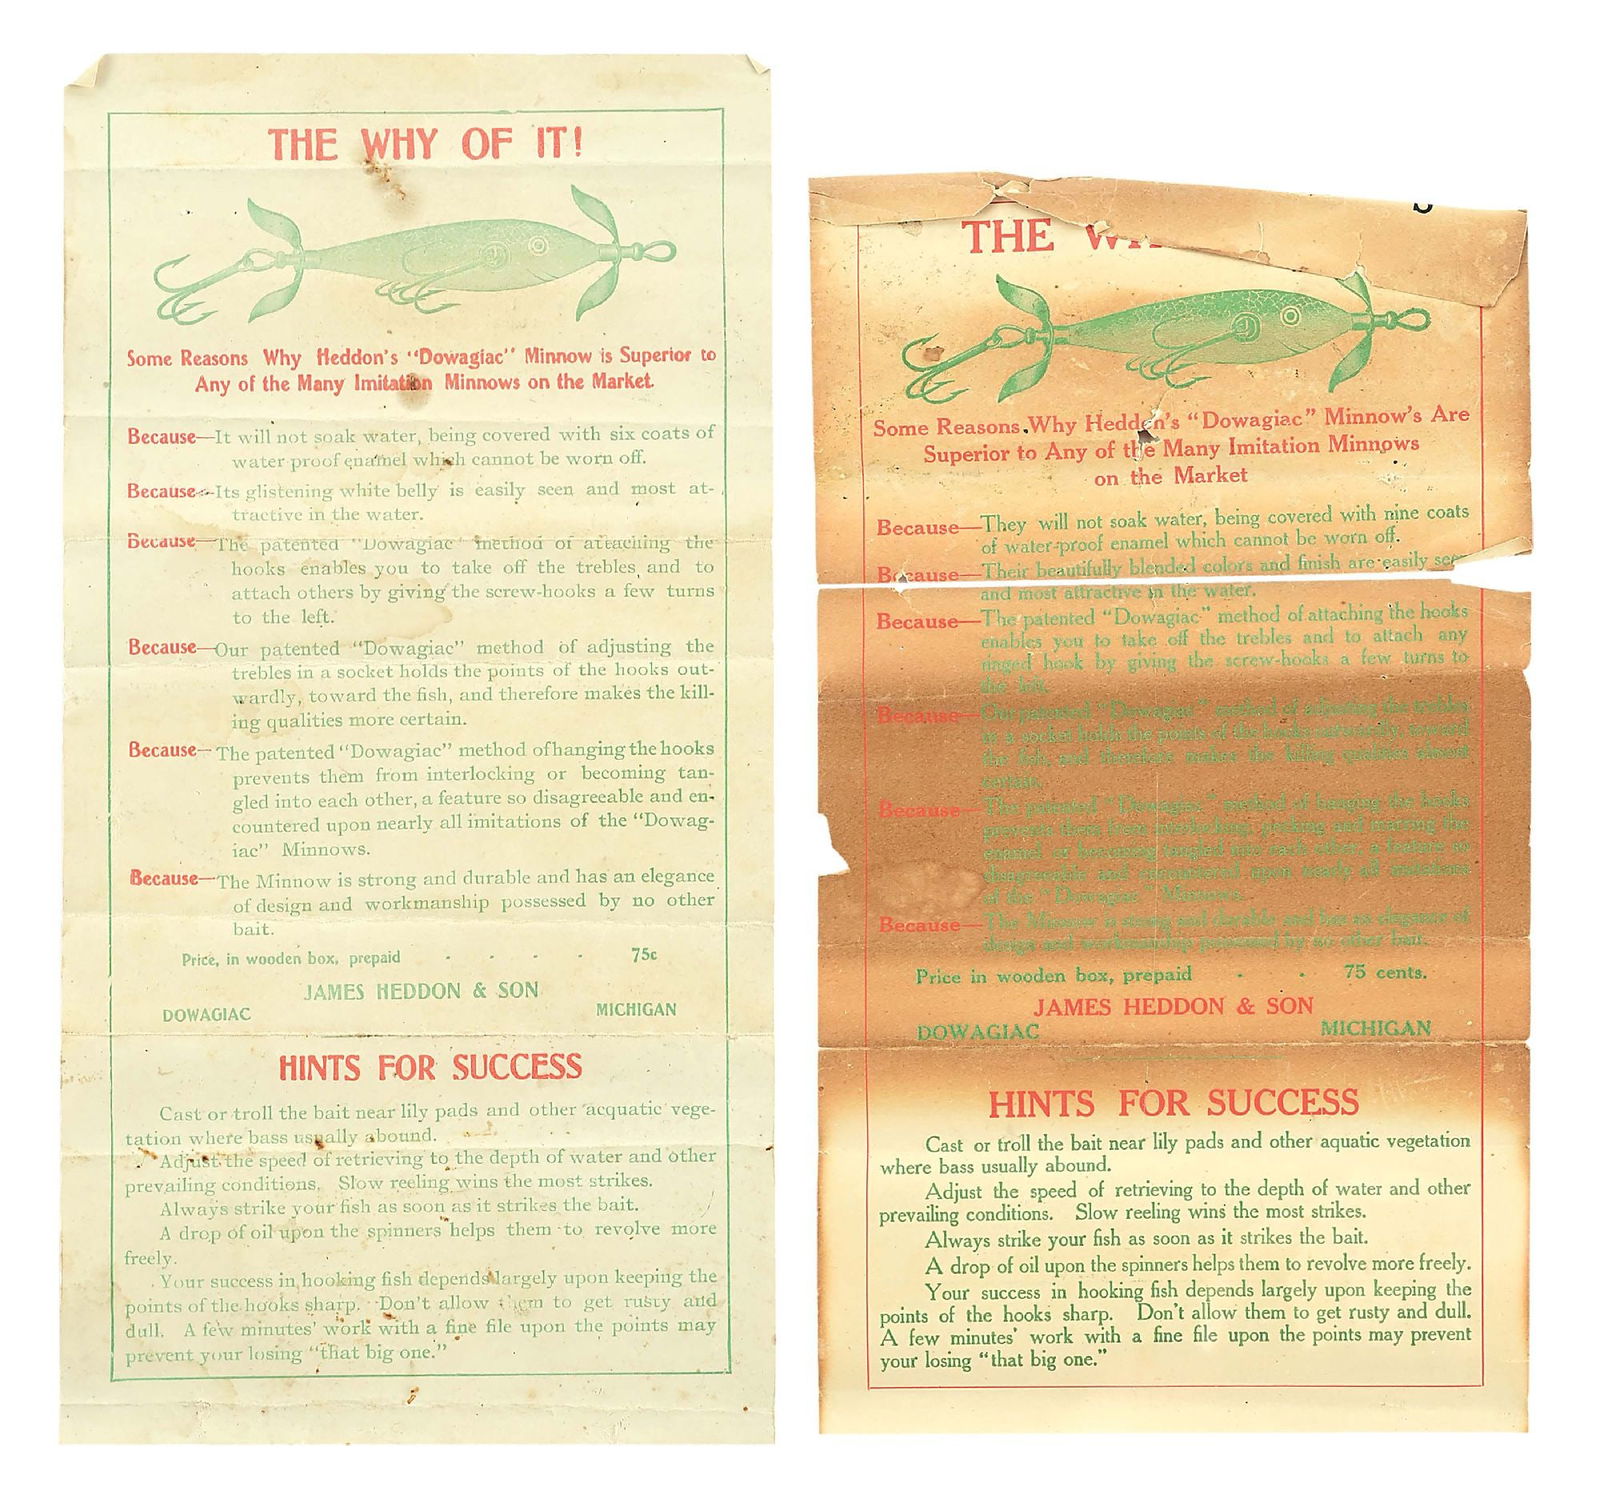 THE WHY OF IT!
Some Reasons Why Heddon's "Dowagiac" Minnow is Superior to
Any of the Many Imitation Minnows on the Market.
Because—It will not soak water, being covered with six coats of
water proof enamel which cannot be worn off.
Because—Its glistening white belly is easily seen and most at-
tractive in the water.
Because—The patented "Dowagiac" method of attaching the
hooks enables you to take off the trebles and to
attach others by giving the screw-hooks a few turns
to the left.
Because—Our patented "Dowagiac" method of adjusting the
trebles in a socket holds the points of the hooks out-
wardly, toward the fish, and therefore makes the kill-
ing qualities more certain.
Because—The patented "Dowagiac" method of hanging the hooks
prevents them from interlocking or becoming tan-
gled into each other, a feature so disagreeable and en-
countered upon nearly all imitations of the "Dowag-
iac" Minnows.
Because—The Minnow is strong and durable and has an elegance
of design and workmanship possessed by no other
bait.
Price, in wooden box, prepaid - - - - 75c
JAMES HEDDON & SON
DOWAGIAC MICHIGAN
HINTS FOR SUCCESS
Cast or troll the bait near lily pads and other acquatic vege-
tation where bass usually abound.
Adjust the speed of retrieving to the depth of water and other
prevailing conditions. Slow reeling wins the most strikes.
Always strike your fish as soon as it strikes the bait.
A drop of oil upon the spinners helps them to revolve more
freely.
Your success in hooking fish depends largely upon keeping the
points of the hooks sharp. Don't allow them to get rusty and
dull. A few minutes' work with a fine file upon the points may
prevent your losing "that big one."
THE
Some Reasons Why Heddon's "Dowagiac" Minnow's Are
Superior to Any of the Many Imitation Minnows
on the Market
Because—They will not soak water, being covered with nine coats
of water-proof enamel which cannot be worn off.
Because—Their beautifully blended colors and finish are easily
and most attractive in the water.
Because—The patented "Dowagiac" method of attaching the hooks
enables you to take off the trebles and to attach any
ringed hook by giving the screw-hooks a few turns to
the left.
Because—Our patented "Dowagiac" method of adjusting the trebles
in a socket holds the points of the hooks outwardly, toward
the fish, and therefore makes the killing qualities almost
certain.
Because—The patented "Dowagiac" method of hanging the hooks
prevents them from interlocking, pecking and marring the
enamel or becoming tangled into each other, a feature so
disagreeable and encountered upon nearly all imitations
of the "Dowagiac" Minnows.
Because—The Minnow is strong and durable and has an elegance of
design and workmanship possessed by no other bait.
Price in wooden box, prepaid - - 75 cents.
JAMES HEDDON & SON
DOWAGIAC MICHIGAN
HINTS FOR SUCCESS
Cast or troll the bait near lily pads and other aquatic vegetation
where bass usually abound.
Adjust the speed of retrieving to the depth of water and other
prevailing conditions. Slow reeling wins the most strikes.
Always strike your fish as soon as it strikes the bait.
A drop of oil upon the spinners helps them to revolve more freely.
Your success in hooking fish depends largely upon keeping the
points of the hooks sharp. Don't allow them to get rusty and dull.
A few minutes' work with a fine file upon the points may prevent
your losing "that big one."